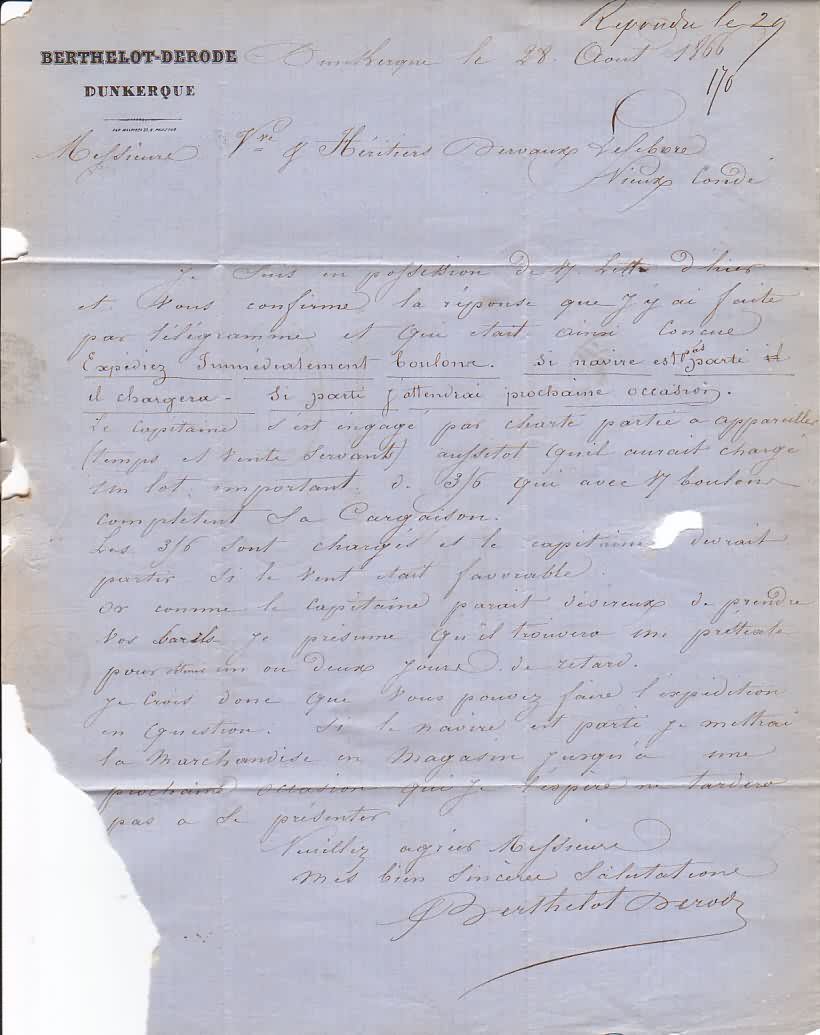 Repondu le 29
BERTHELOT-DERODE
Dunkerque le 28 Aout 1866
DUNKERQUE
170
Messieurs Vve & Héritiers Dervaux Lefebvre
Vieux Condé
Je suis en possession de V/ Lettre d'hier
et Vous confirme la réponse que j'y ai faite
par télégramme et qui etait ainsi concue
Expédiez Immédiatement boulons. Si navire est pas parti il
il chargera - Si parti j'attendrai prochaine occasion.
Le capitaine s'est engagé par charte partie a appareiller
(temps et Vents Servants) aussitot qu'il aurait chargé
un lot important de 3/6 qui avec V/ boulons
completent sa Cargaison.
Les 3/6 sont chargés et le capitaine devrait
partir si le Vent etait favorable.
Or comme le Capitaine parait désireux de prendre
Vos barils je présume qu'il trouvera un prétexte
pour un ou deux jours de retard.
Je crois donc que Vous pouvez faire l'expédition
en question. Si le navire est parti je mettrai
la Marchandise en Magasin jusqu'à une
prochaine occasion qui je l'espère ne tardera
pas a se présenter
Veuillez agréer Messieurs
Mes bien sincères Salutations
Berthelot Derode